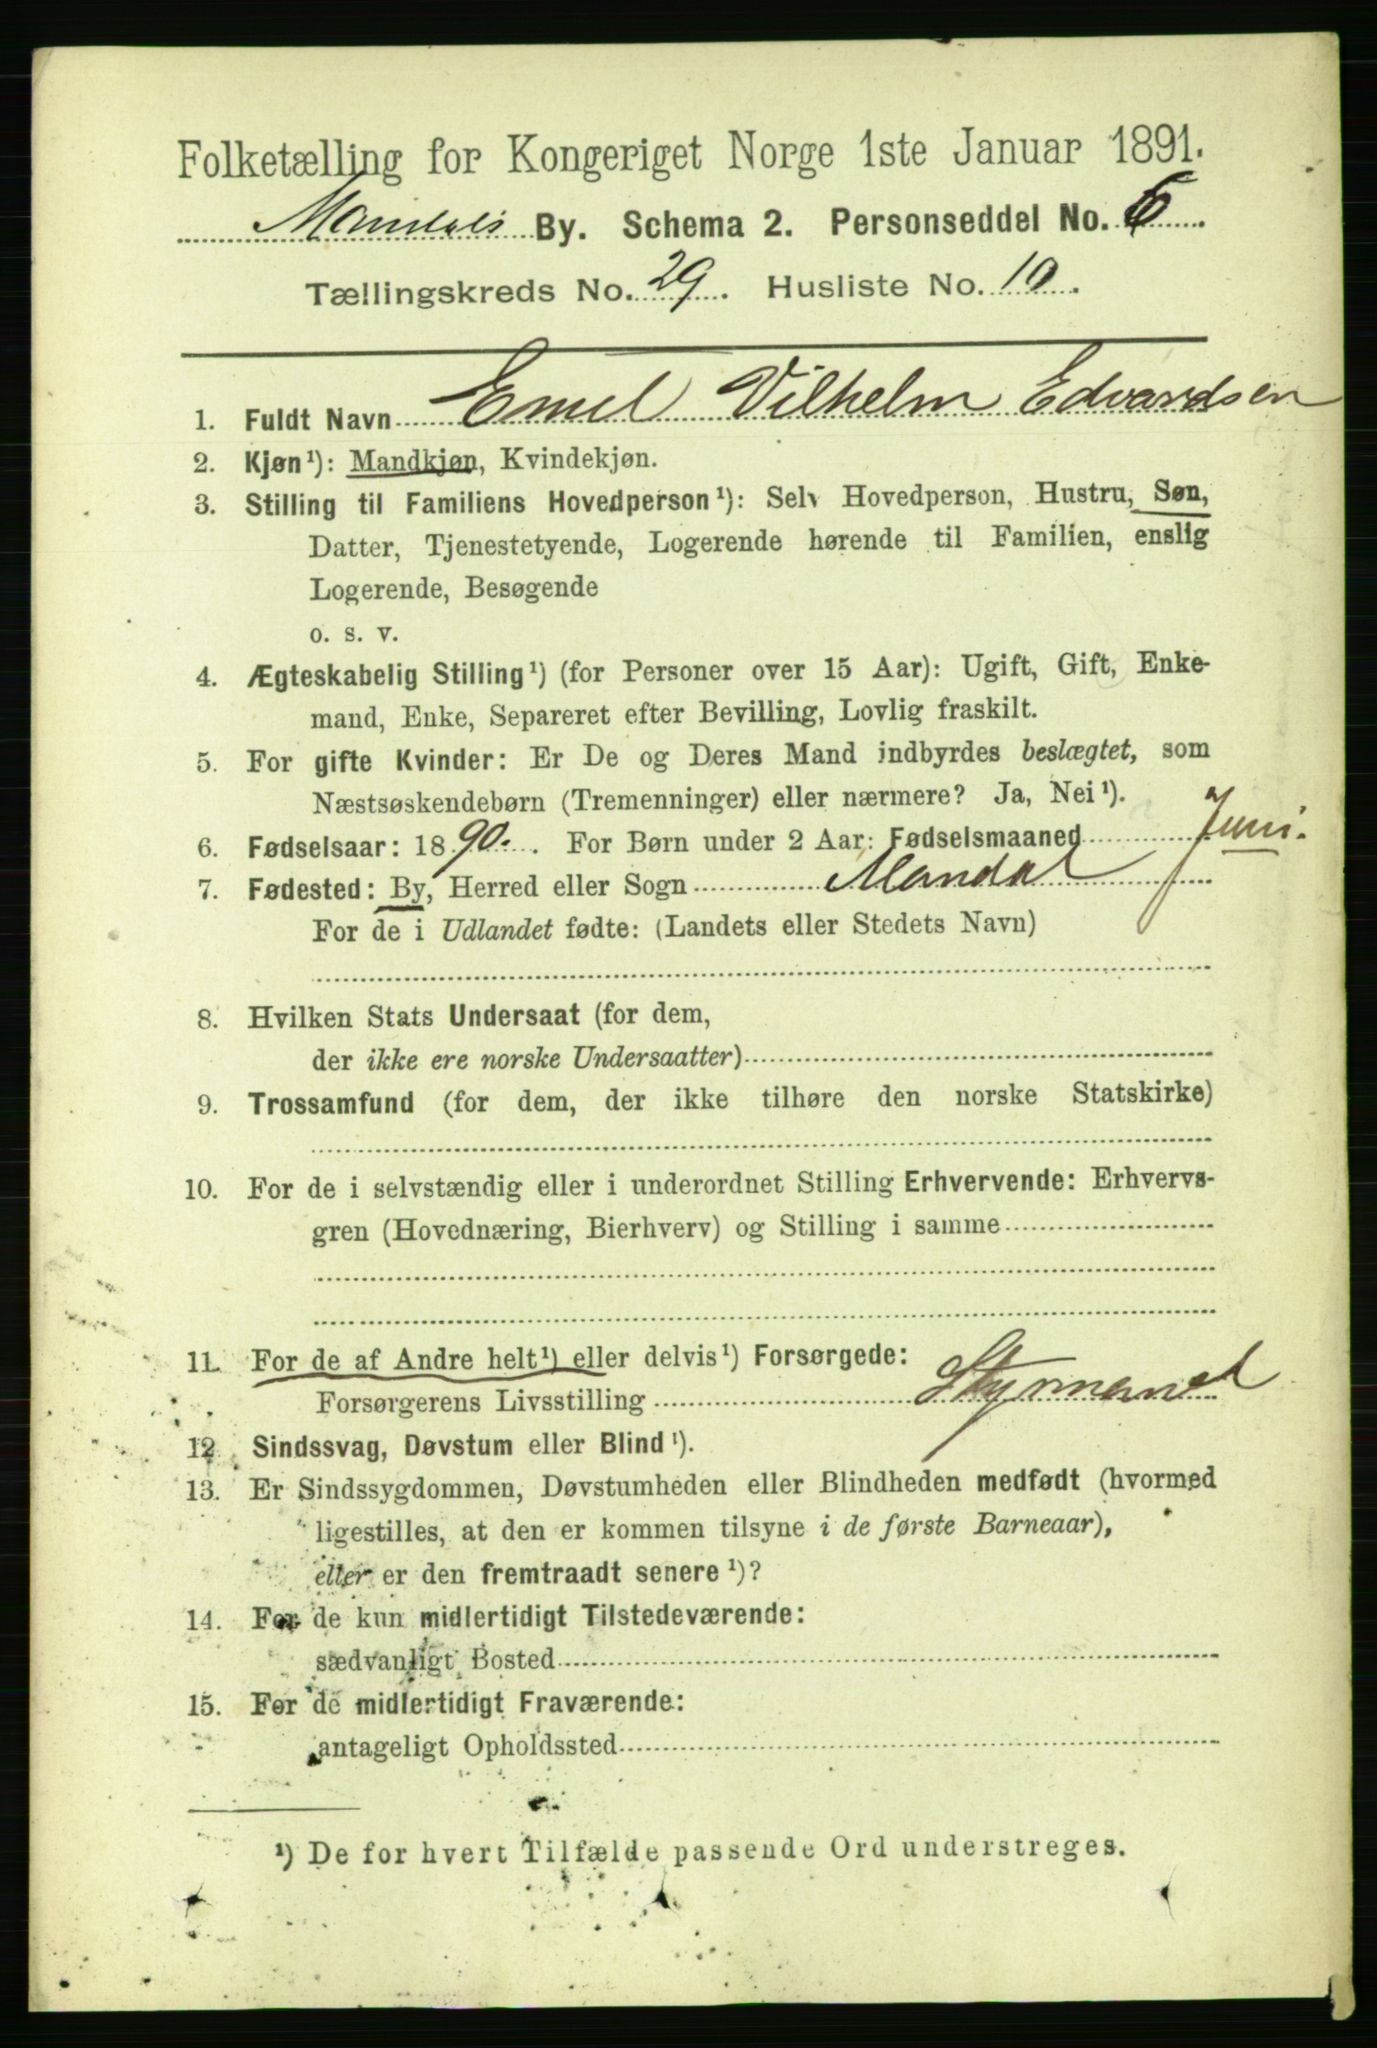 Folketælling for Kongeriget Norge 1ste Januar 1891.
Mandals By. Schema 2. Personseddel No. 6
Tællingskreds No. 29. Husliste No. 10.
1. Fuldt Navn Emil Vilhelm Edvardsen
2. Kjøn¹): Mandkjøn, Kvindekjøn.
3. Stilling til Familiens Hovedperson¹): Selv Hovedperson, Hustru, Søn,
Datter, Tjenestetyende, Logerende hørende til Familien, enslig
Logerende, Besøgende
o. s. v.
4. Ægteskabelig Stilling¹) (for Personer over 15 Aar): Ugift, Gift, Enke-
mand, Enke, Separeret efter Bevilling, Lovlig fraskilt.
5. For gifte Kvinder: Er De og Deres Mand indbyrdes beslægtet, som
Næstsøskendebørn (Tremenninger) eller nærmere? Ja, Nei¹).
6. Fødselsaar: 1890. For Børn under 2 Aar: Fødselsmaaned Juni.
7. Fødested: By, Herred eller Sogn Mandal
For de i Udlandet fødte: (Landets eller Stedets Navn)
8. Hvilken Stats Undersaat (for dem,
der ikke ere norske Undersaatter)
9. Trossamfund (for dem, der ikke tilhøre den norske Statskirke)
10. For de i selvstændig eller i underordnet Stilling Erhvervende: Erhvervs-
gren (Hovednæring, Bierhverv) og Stilling i samme
11. For de af Andre helt¹) eller delvis¹) Forsørgede:
Forsørgerens Livsstilling Styrmand
12. Sindssvag, Døvstum eller Blind¹).
13. Er Sindssygdommen, Døvstumheden eller Blindheden medfødt (hvormed
ligestilles, at den er kommen tilsyne i de første Barneaar),
eller er den fremtraadt senere¹)?
14. For de kun midlertidigt Tilstedeværende:
sædvanligt Bosted
15. For de midlertidigt Fraværende:
antageligt Opholdssted
¹) De for hvert Tilfælde passende Ord understreges.